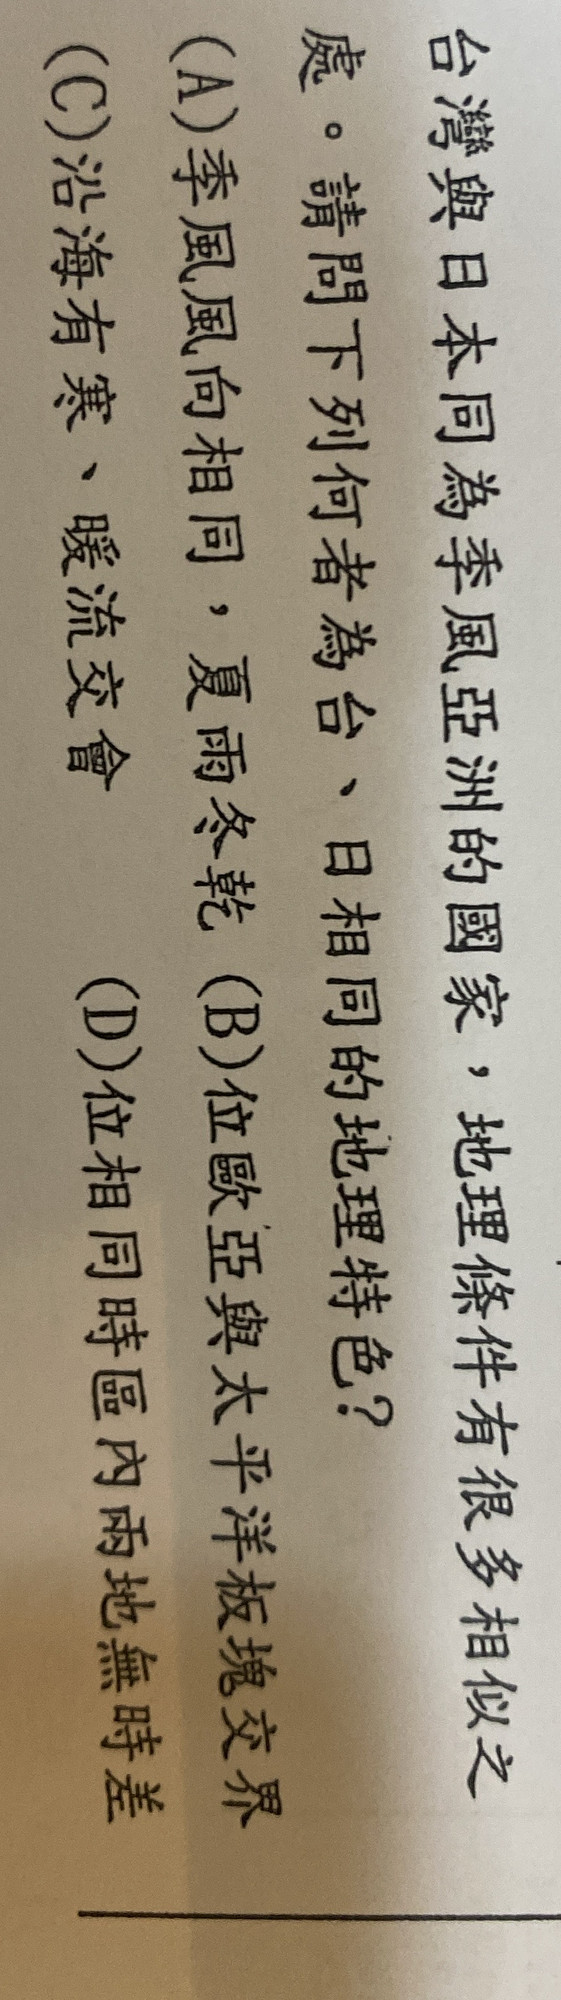 台灣與日本同為季風亞洲的國家，地理條件有很多相似之
處。請問下列何者為台、日相同的地理特色?
(A)季風風向相同，夏雨冬乾 (B)位歐亞與太平洋板塊交界
(C)沿海有寒、暖流交會 (D)位相同時區內兩地無時差